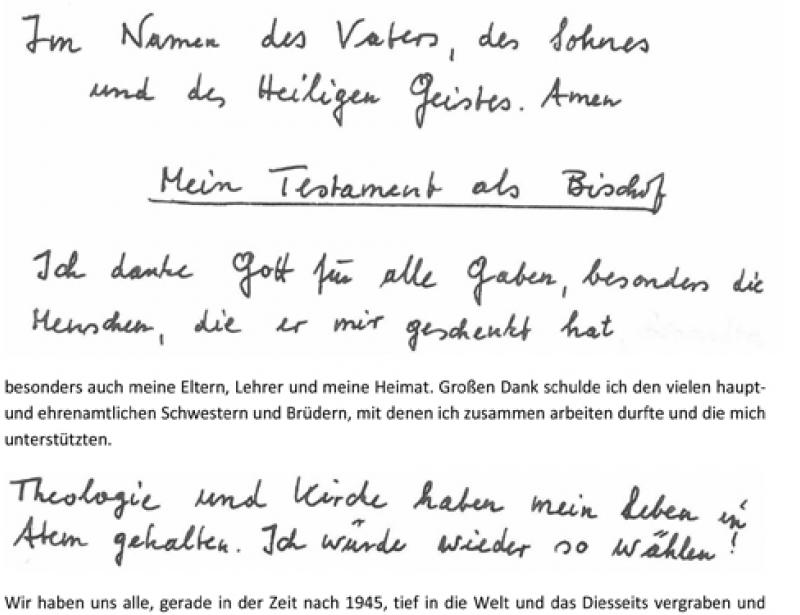 Im Namen des Vaters, des Sohnes
und des Heiligen Geistes. Amen
Mein Testament als Bischof
Ich danke Gott für alle Gaben, besonders die
Menschen, die er mir geschenkt hat,
besonders auch meine Eltern, Lehrer und meine Heimat. Großen Dank schulde ich den vielen haupt-
und ehrenamtlichen Schwestern und Brüdern, mit denen ich zusammen arbeiten durfte und die mich
unterstützten.
Theologie und Kirche haben mein Leben in
Atem gehalten. Ich würde wieder so wählen!
Wir haben uns alle, gerade in der Zeit nach 1945, tief in die Welt und das Diesseits vergraben und